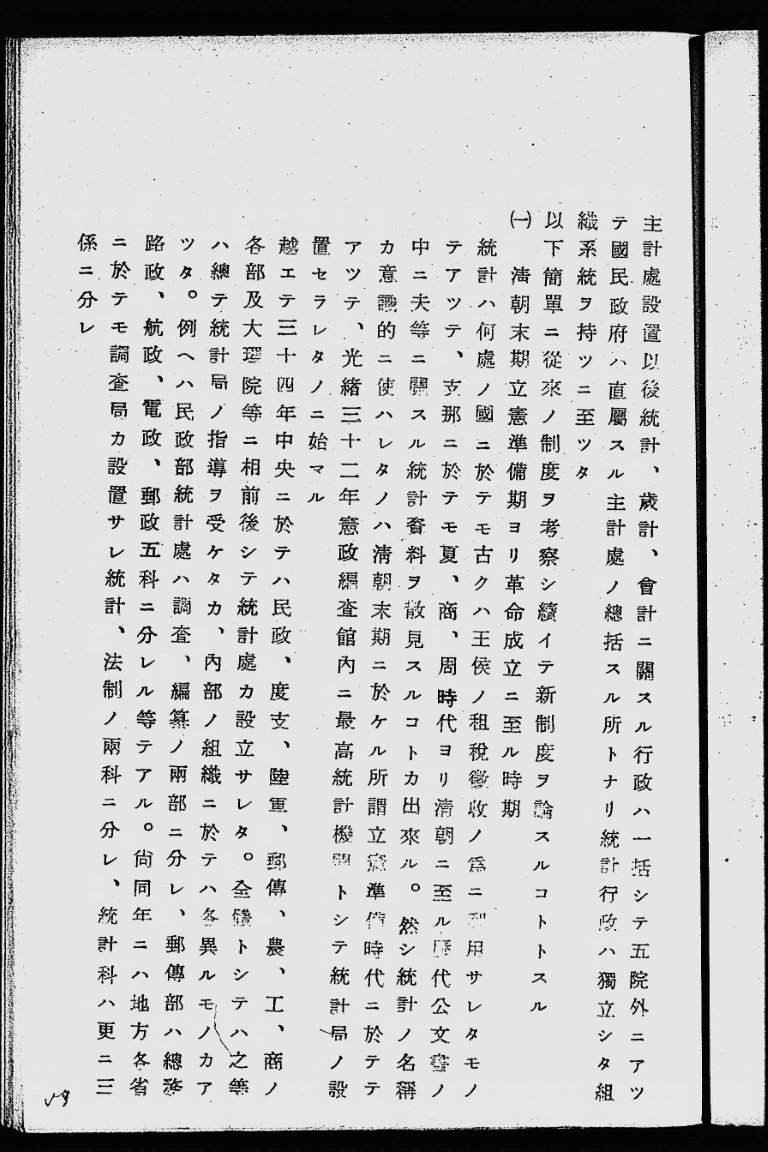 主計處設置以後統計、歲計、會計ニ關スル行政ハ一括シテ五院外ニアツ
テ國民政府ハ直屬スル主計處ノ總括スル所トナリ統計行政ハ獨立シタ組
織系統ヲ持ツニ至ツタ
以下簡單ニ從來ノ制度ヲ考察シ續イテ新制度ヲ論スルコトトスル
㈠ 淸朝末期立憲準備期ヨリ革命成立ニ至ル時期
統計ハ何處ノ國ニ於テモ古クハ王侯ノ租稅徵收ノ爲ニ利用サレタモノ
テアツテ、支那ニ於テモ夏、商、周時代ヨリ淸朝ニ至ル歷代公文書ノ
中ニ夫等ニ關スル統計資料ヲ散見スルコトカ出來ル。然シ統計ノ名稱
カ意識的ニ使ハレタノハ淸朝末期ニ於ケル所謂立憲準備時代ニ於テテ
アツテ、光緖三十二年憲政編査館內ニ最高統計機關トシテ統計局ノ設
置セラレタノニ始マル
越エテ三十四年中央ニ於テハ民政、度支、陸軍、郵傳、農、工、商ノ
各部及大理院等ニ相前後シテ統計處カ設立サレタ。全體トシテハ之等
ハ總テ統計局ノ指導ヲ受ケタカ、內部ノ組織ニ於テハ各異ルモノカア
ツタ。例ヘハ民政部統計處ハ調査、編纂ノ兩部ニ分レ、郵傳部ハ總務
路政、航政、電政、郵政五科ニ分レル等テアル。尙同年ニハ地方各省
ニ於テモ調査局カ設置サレ統計、法制ノ兩科ニ分レ、統計科ハ更ニ三
係ニ分レ